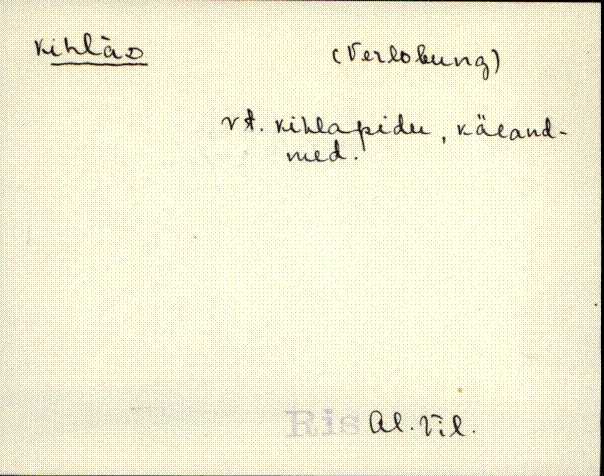 kihlàs (Verlobung)
vt. kihlapidu, käeand-
med.
Ris Al. Vil.